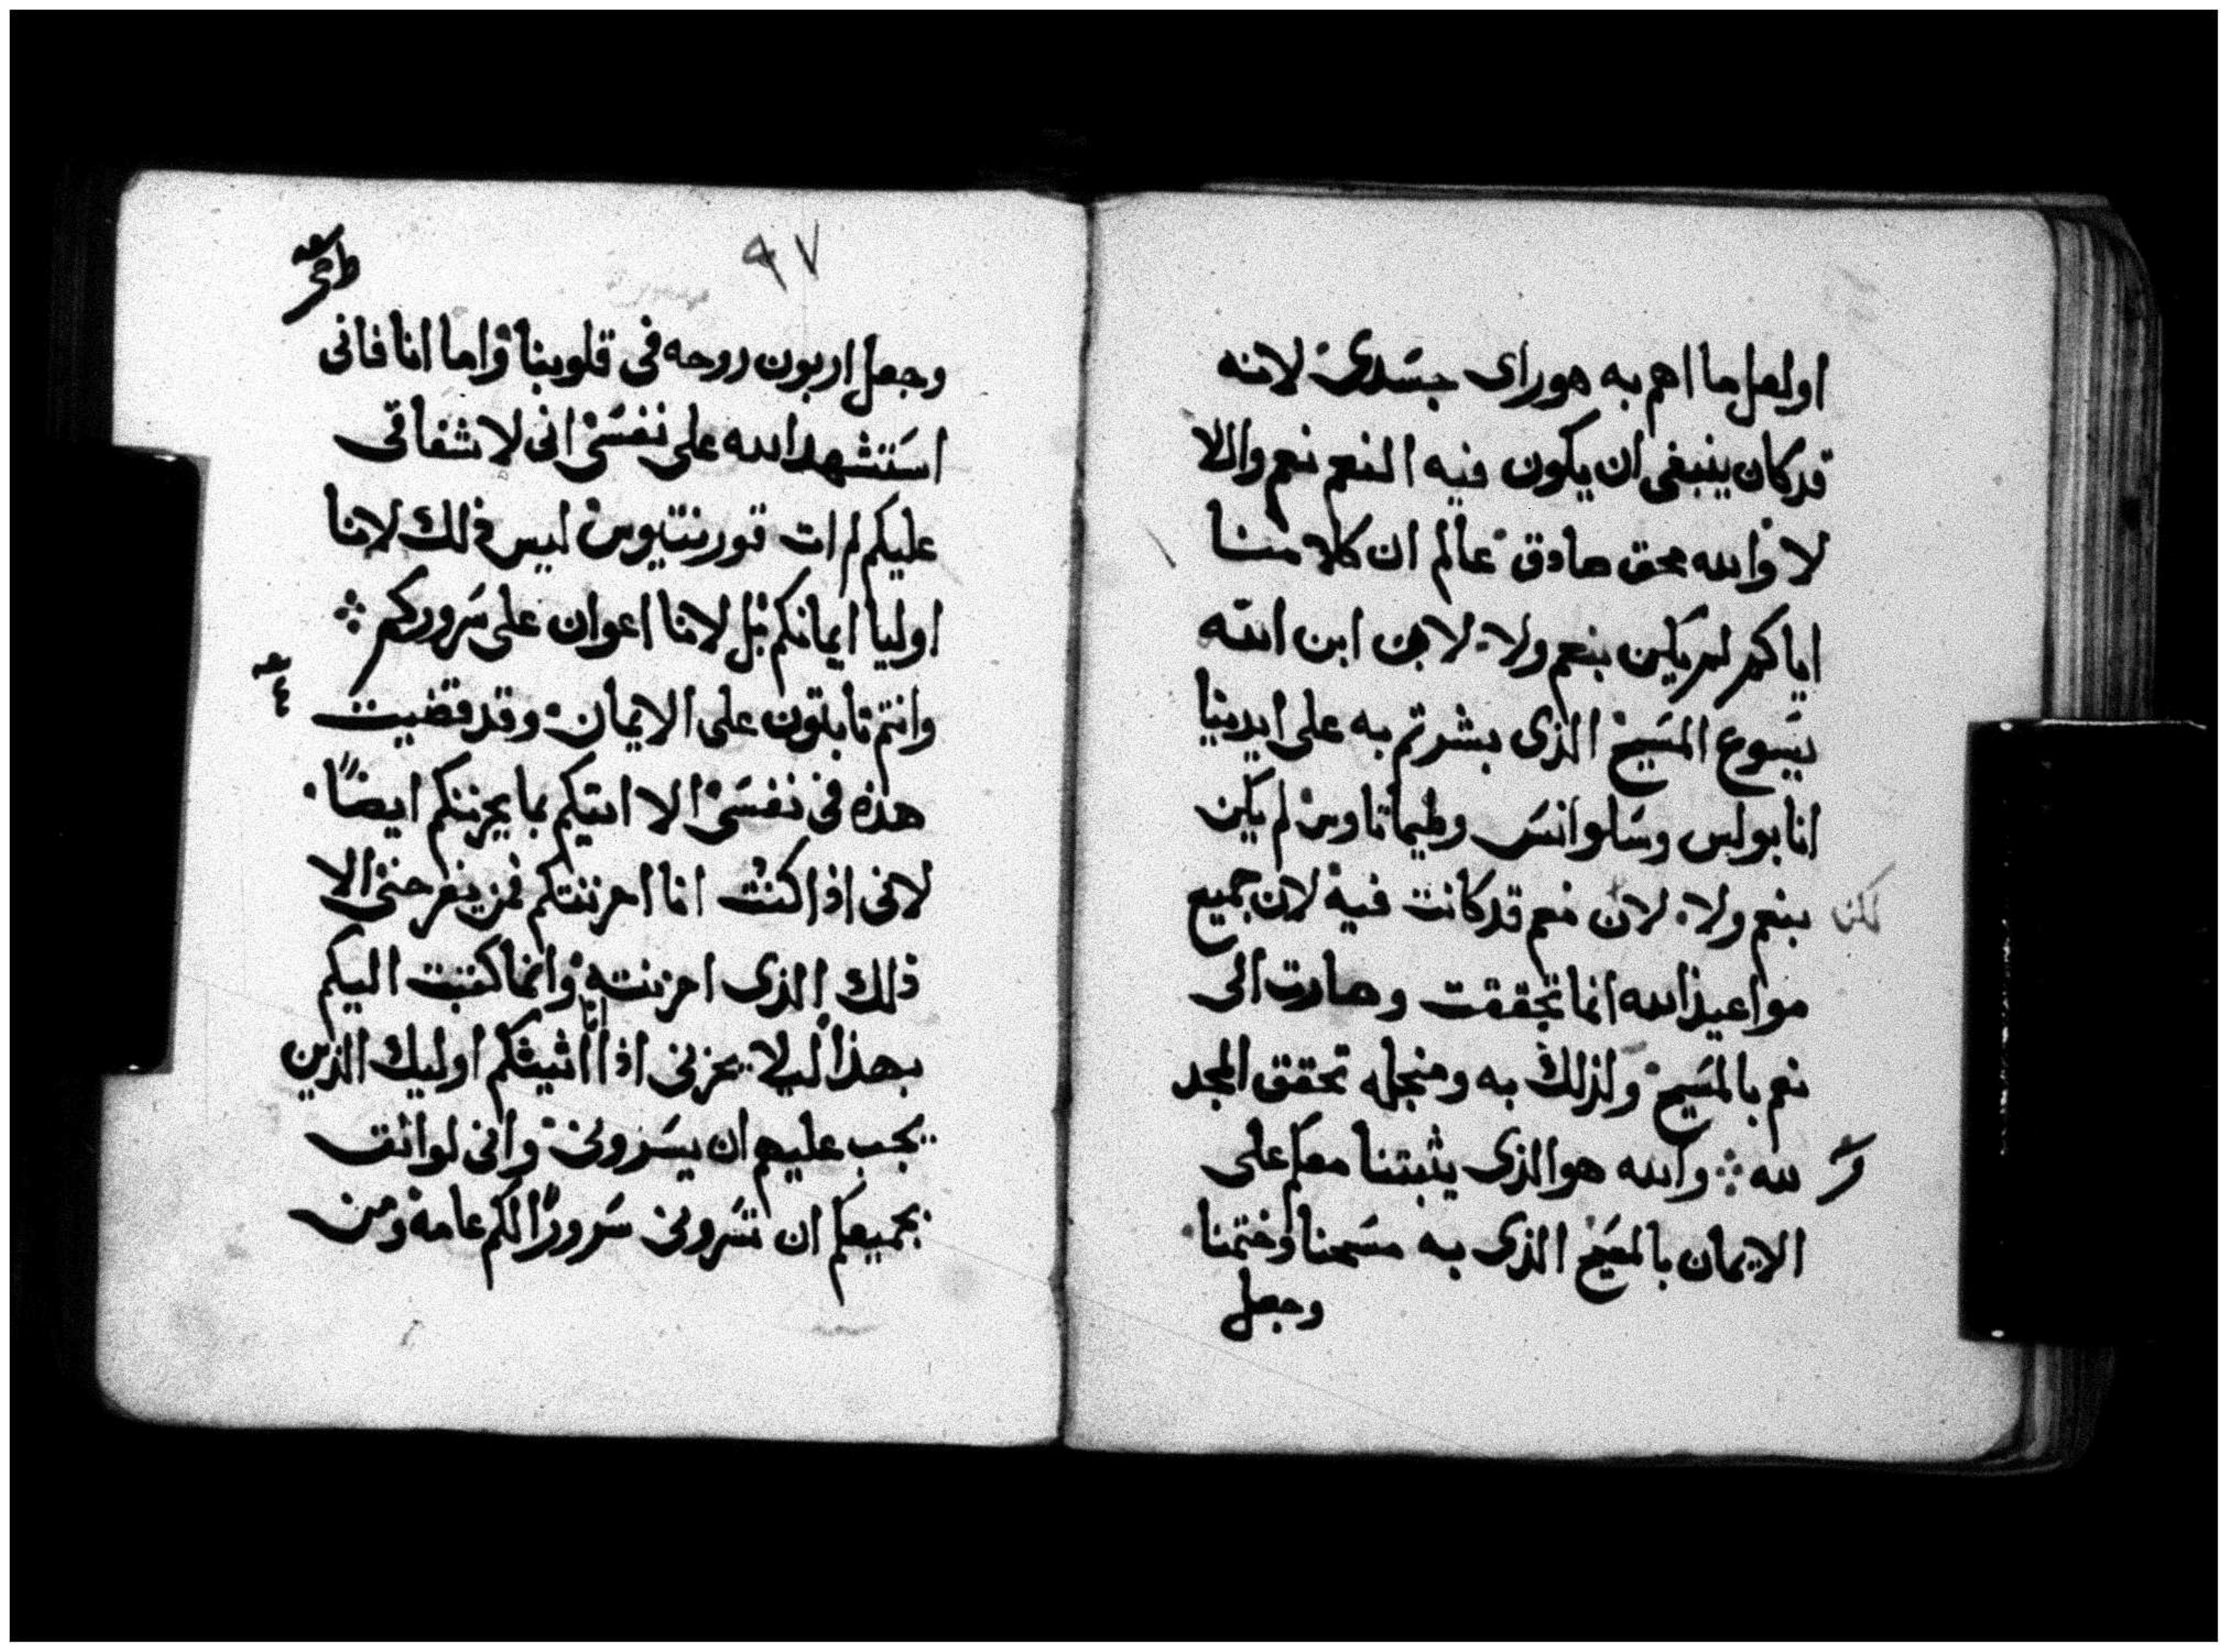 اولعل ما اهم به هوراى جسدى لانه
قد كان ينبغى ان يكون فيه النعم نعم واللا
لا والله محق صادق عالم ان كلامنا
اياكم لم يكن بنعم ولا لا بن ابن الله
يسوع المسيح الذى بشرتم به على ايدينا
انا بولس وسلوانس وطيماتاوس لم يكن
بنعم ولا لان نعم قد كانت فيه لان جميع
لكن
مواعيد الله انما تحققت وصارت الى
نعم بالمسيح ولذلك به ومنجله تحقق المجد
لله والله هو الذى يثبتنا معكم على
الايمان بالمسيح الذى به مسحنا وختمنا
وجعل
٩٧
وجعل اربون روحه فى قلوبنا واما انا فانى
استشهد الله على نفسى انى لاشفاقى
عليكم لم ات قورنتيوس ليس ذلك لانا
اوليا ايمانكم بل لاننا اعوان على سروركم
وانتم ثابتون على الايمان وقد قضيت
هذه فى نفسى الا اتيكم بما يحزنكم ايضًا
لانى اذا كنت انا احزنتكم فمن يفرحنى الا
ذلك الذى احزنته وانما كتبت اليكم
بهذا ليلا يحزنى اذا انا اتيتكم اوليك الذين
يجب عليهم ان يسرونى وانى لواثق
بجميعكم ان تسرونى سرورًا لكم عامة ومن